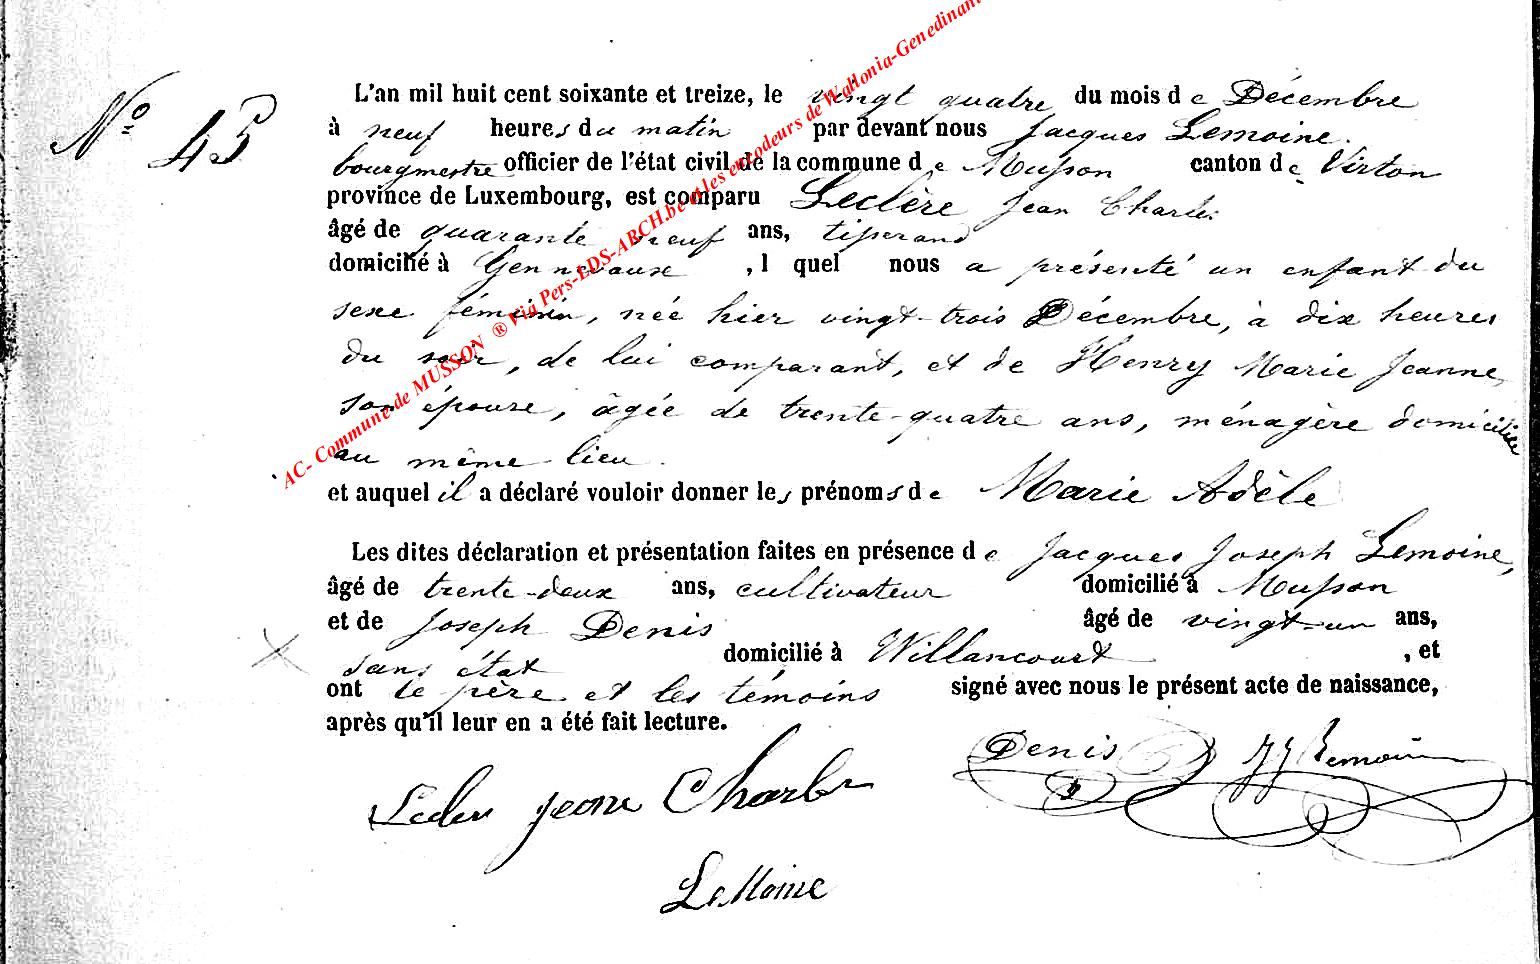 N° 45
L'an mil huit cent soixante et treize, le vingt quatre du mois de Décembre
à neuf heures du matin par devant nous Jacques Lemoine.
bourgmestre officier de l'état civil de la commune de Musson canton de Virton
province de Luxembourg, est comparu Leclère Jean Charles
âgé de quarante neuf ans, tisserand
domicilié à Gennevaux , l quel nous a présenté un enfant du
sexe féminin, née hier vingt-trois Décembre, à dix heures
du soir, de lui comparant, et de Henry Marie Jeanne,
son épouse, âgée de trente-quatre ans, ménagère domiciliée
au même lieu.
et auquel il a déclaré vouloir donner les prénoms de Marie Adèle
Les dites déclaration et présentation faites en présence de Jacques Joseph Lemoine,
âgé de trente-deux ans, cultivateur domicilié à Musson
et de Joseph Denis âgé de vingt-un ans,
sans état domicilié à Willancourt , et
ont le père et les témoins signé avec nous le présent acte de naissance,
après qu'il leur en a été fait lecture.
Denis JJ Lemoine
Jean Charles
LeMoine
AC- Commune de MUSSON ® Via Pers-LDS-ARCH.be et les encodeurs de Wallonia-Genedinant